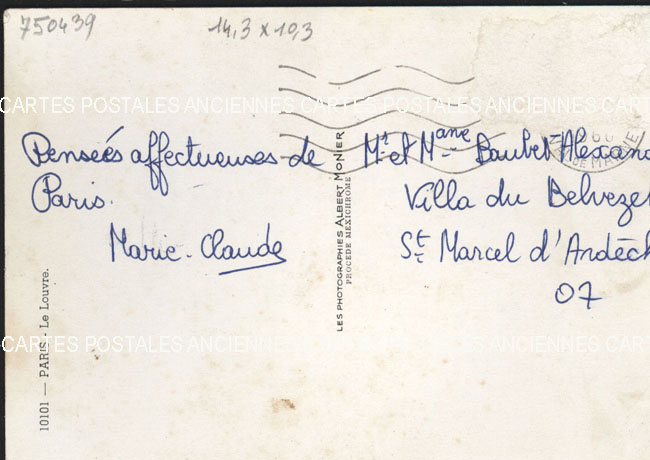 750439
14,3 x 10,3
CARTES POSTALES ANCIENNES CARTES POSTALES ANCIENNES
Pensées affectueuses de
Paris.
Marie-Claude
Mr et Mme Baubet-Alexand
Villa du Belvezet
St Marcel d'Ardèch
07
LES PHOTOGRAPHIES ALBERT MONIER
PROCEDE MEXICHROME
10101 — PARIS - Le Louvre.
CARTES POSTALES ANCIENNES CARTES POSTALES ANCIENNES